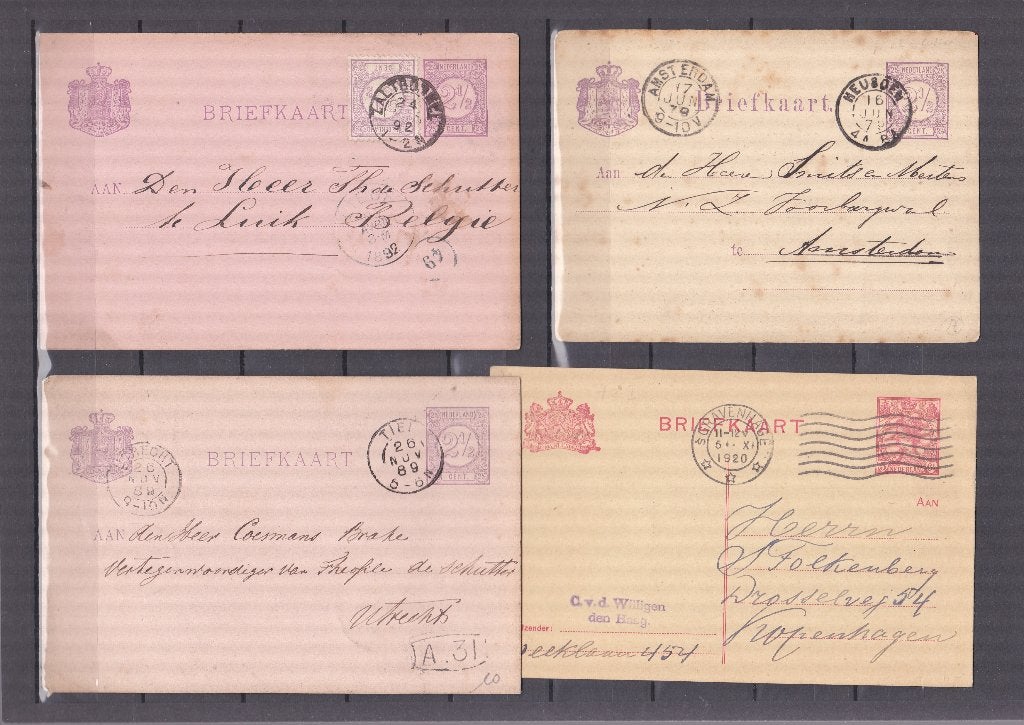 BRIEFKAART
NEDERLAND
2½
CENT
ZALTBOMMEL
24
92
AAN Den Heer Th de Schutter
te Luik Belgie
1892
49
Briefkaart
AMSTERDAM
17
JUN
79
9-10V
16
JUN
79
NEDERLAND
2½
CENT
Aan de Heeren Smits en Mertens
N. Z. Voorburgwal
te Amsterdam
BRIEFKAART
UTRECHT
26
NOV
89
9-10N
TIEL
26
NOV
89
6-8N
NEDERLAND
2½
CENT
AAN den Heer Coesmans Brake
Vertegenwoordiger van Theophile de Schutter
Utrecht
A.31
10
BRIEFKAART
'S GRAVENHAGE
11-12V
XI
1920
NEDERLAND
AAN
Herrn
S Folkenberg
Drosselvej 54
Kopenhagen
C. v. d. Willigen
den Haag.
454